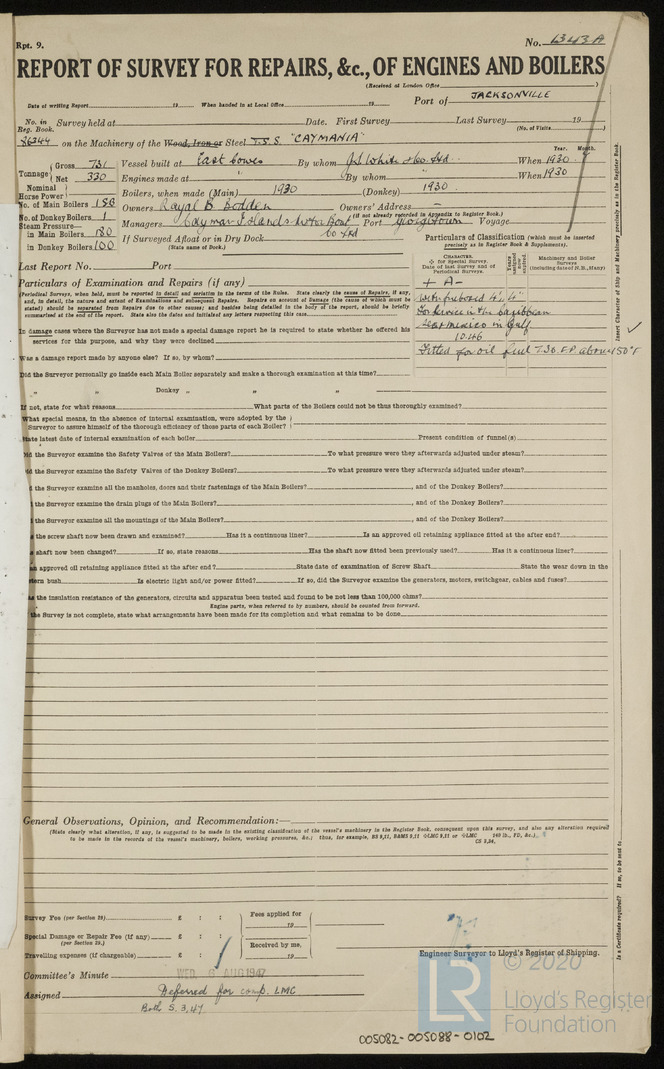 Rpt. 9.
No. 4343A
REPORT OF SURVEY FOR REPAIRS, &c., OF ENGINES AND BOILERS
(Received at London Office )
Port of JACKSONVILLE
Date of writing Report 19 When handed in at Local Office 19
No. in Reg. Book. Survey held at Date. First Survey Last Survey 19
(No. of Visits )
86344 on the Machinery of the Wood, Iron or Steel T.S.S. "CAYMANIA"
Tonnage { Gross 731 Vessel built at East Cowes By whom J.S. White & Co. Ltd. When 1930
Year. Month.
Net 330 Engines made at " By whom " When 1930
Nominal Horse Power } Boilers, when made (Main) 1930 (Donkey) 1930
No. of Main Boilers 1SB Owners Royal B Bodden Owners' Address —
(if not already recorded in Appendix to Register Book.)
No. of Donkey Boilers 1 Managers Cayman Islands Motor Boat Co Ltd Port Georgetown Voyage
Steam Pressure—
in Main Boilers 180 If Surveyed Afloat or in Dry Dock
(State name of Dock.)
in Donkey Boilers 100
Particulars of Classification (which must be inserted precisely as in Register Book & Supplements).
Last Report No. Port
CHARACTER.
✢ for Special Survey.
Date of last Survey and of Periodical Surveys.
Years assigned now expired.
Machinery and Boiler Surveys
(including date of N.B., if any)
+ A-
with freeboard
For service in the Caribbean
Sea & Mexico in Gulf
10.46
Fitted for oil fuel 7.30 F.P. above 150°F
Particulars of Examination and Repairs (if any)
(Periodical Surveys, when held, must be reported in detail and seriatim in the terms of the Rules. State clearly the cause of Repairs, if any, and, in detail, the nature and extent of Examinations and subsequent Repairs. Repairs on account of Damage (the cause of which must be stated) should be separated from Repairs due to other causes; and besides being detailed in the body of the report, should be briefly summarised at the end of the report. State also the dates and initialled any letters respecting this case.
In damage cases where the Surveyor has not made a special damage report he is required to state whether he offered his services for this purpose, and why they were declined
Was a damage report made by anyone else? If so, by whom?
Did the Surveyor personally go inside each Main Boiler separately and make a thorough examination at this time?
" " Donkey " " " "
If not, state for what reasons What parts of the Boilers could not be thus thoroughly examined?
What special means, in the absence of internal examination, were adopted by the Surveyor to assure himself of the thorough efficiency of those parts of each Boiler?
State latest date of internal examination of each boiler Present condition of funnel(s)
Did the Surveyor examine the Safety Valves of the Main Boilers? To what pressure were they afterwards adjusted under steam?
Did the Surveyor examine the Safety Valves of the Donkey Boilers? To what pressure were they afterwards adjusted under steam?
the Surveyor examine all the manholes, doors and their fastenings of the Main Boilers? , and of the Donkey Boilers?
the Surveyor examine the drain plugs of the Main Boilers? , and of the Donkey Boilers?
the Surveyor examine all the mountings of the Main Boilers? , and of the Donkey Boilers?
the screw shaft now been drawn and examined? Has it a continuous liner? Is an approved oil retaining appliance fitted at the after end?
shaft now been changed? If so, state reasons Has the shaft now fitted been previously used? Has it a continuous liner?
an approved oil retaining appliance fitted at the after end? State date of examination of Screw Shaft State the wear down in the
stern bush Is electric light and/or power fitted? If so, did the Surveyor examine the generators, motors, switchgear, cables and fuses?
the insulation resistance of the generators, circuits and apparatus been tested and found to be not less than 100,000 ohms?
Engine parts, when referred to by numbers, should be counted from forward.
the Survey is not complete, state what arrangements have been made for its completion and what remains to be done
General Observations, Opinion, and Recommendation:—
(State clearly what alteration, if any, is suggested to be made in the existing classification of the vessel's machinery in the Register Book, consequent upon this survey, and also any alteration required to be made in the records of the vessel's machinery, boilers, working pressures, &c.) thus, for example, BS 9,11, BAMS 9,11 ✢LMC 9,11 or ✢LMC 140 lb., FD, &c.)
CS 3,34,
Survey Fee (per Section 29) £ : :
Fees applied for
19
Special Damage or Repair Fee (if any) £ : :
(per Section 29.)
Received by me,
Travelling expenses (if chargeable) £ : :
19
Engineer Surveyor to Lloyd's Register of Shipping.
Committee's Minute WED 6 AUG 1947
Assigned Deferred for comp. LMC
Both S. 3,47.
Insert Character of Ship and Machinery precisely as in the Register Book.
Is a Certificate required? If so, to be sent to
© 2020
LR
Lloyd's Register
Foundation
005082-005088-0102